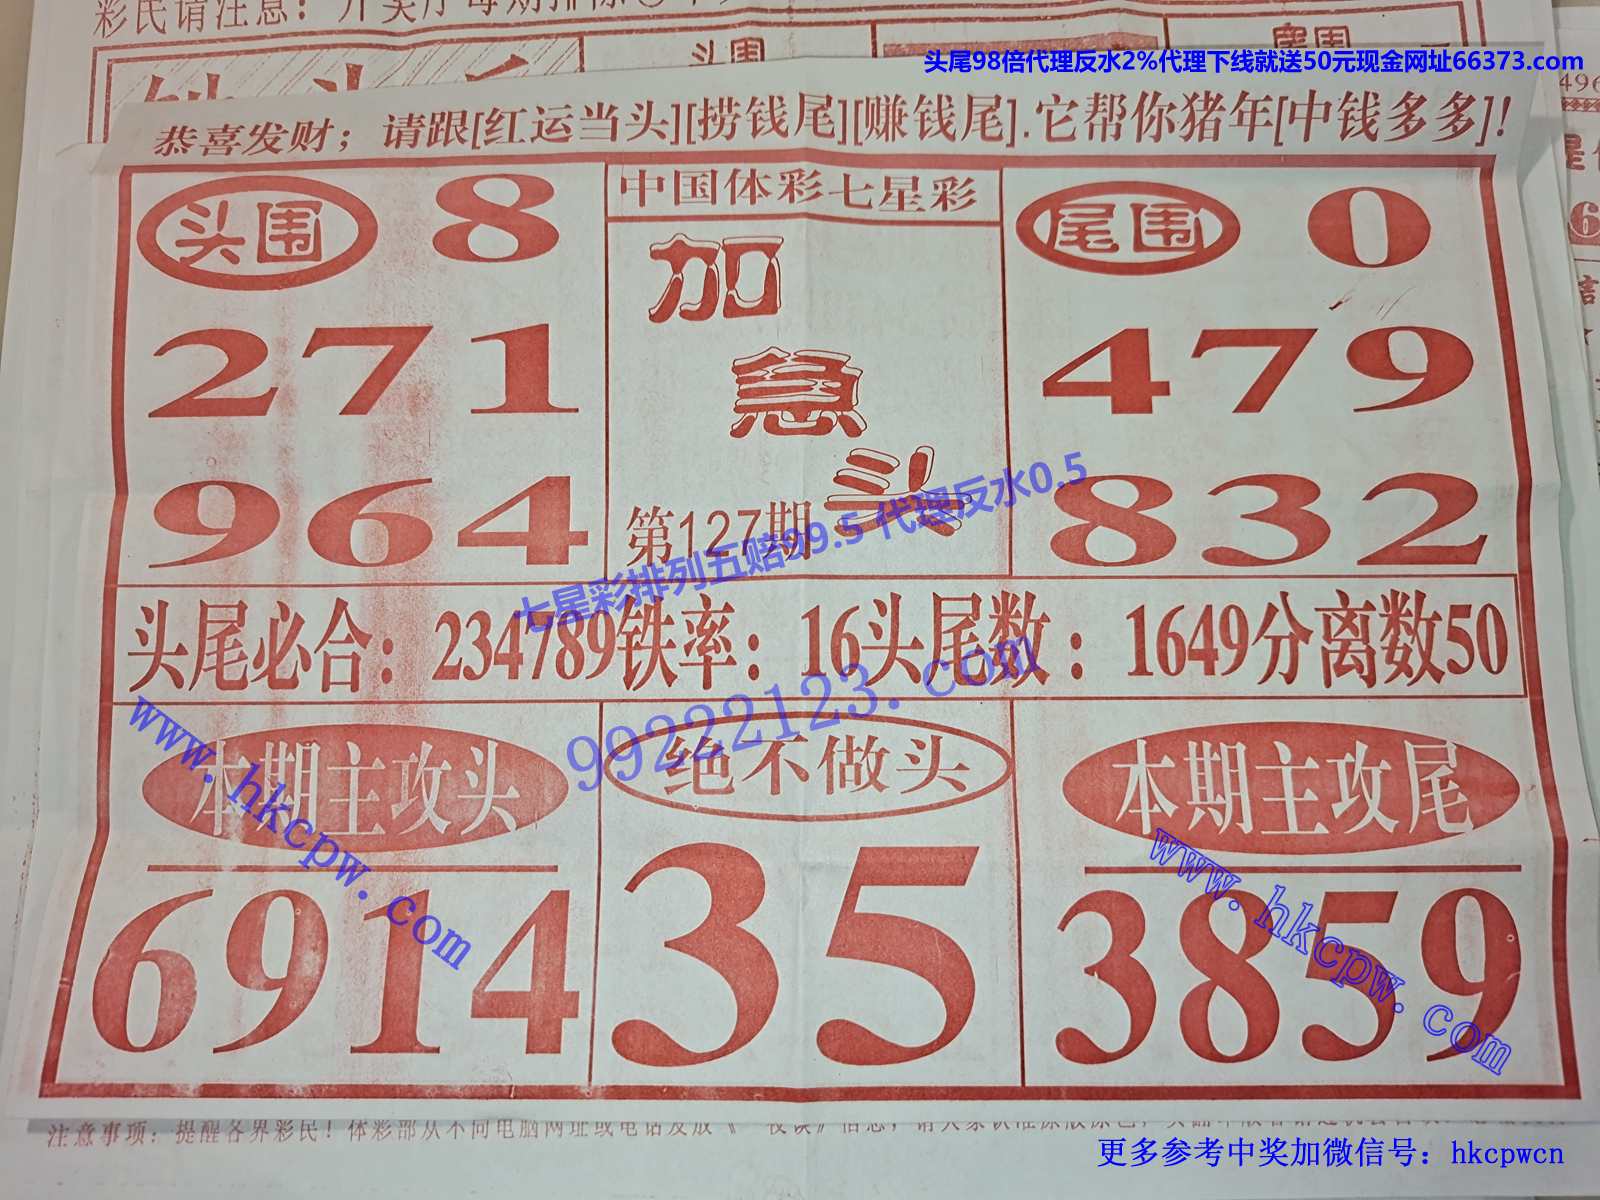 彩民请注意：
头围
头尾98倍代理反水2%代理下线就送50元现金网址66373.com
恭喜发财；请跟[红运当头][捞钱尾][赚钱尾].它帮你猪年[中钱多多]!
头围 8
271
964
中国体彩七星彩
加
急
头
第127期
尾围 0
479
832
七星彩排列五赔99.5 代理反水0.5
头尾必合：234789铁率：16头尾数：1649分离数50
99222123.com
本期主攻头
6914
绝不做头
35
本期主攻尾
3859
www.hkcpw.com
www.hkcpw.com
注意事项：提醒各界彩民！体彩部从不向电脑网址或电话发放
更多参考中奖加微信号：hkcpwcn